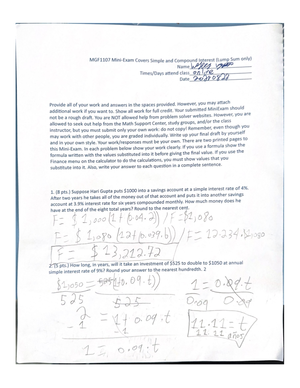 MGF1107 Mini-Exam Covers Simple and Compound Interest (Lump Sum only)
Name
Times/Days attend class online
Date
Provide all of your work and answers in the spaces provided. However, you may attach
additional work if you want to. Show all work for full credit. Your submitted MiniExam should
not be a rough draft. You are NOT allowed help from problem solver websites. However, you are
allowed to seek out help from the Math Support Center, study groups, and/or the class
instructor, but you must submit only your own work: do not copy! Remember, even though you
may work with other people, you are graded individually. Write up your final draft by yourself
and in your own style. Your work/responses must be your own. There are two printed pages to
this Mini-Exam. In each problem below show your work clearly. If you use a formula show the
formula written with the values substituted into it before giving the final value. If you use the
Finance menu on the calculator to do the calculations, you must show values that you
substitute into it. Also, write your answer to each question in a complete sentence.
1. (8 pts.) Suppose Hari Gupta puts $1000 into a savings account at a simple interest rate of 4%.
After two years he takes all of the money out of that account and puts it into another savings
account at 3.9% interest rate for six years compounded monthly. How much money does he
have at the end of the eight total years? Round to the nearest cent.
F = $1,000(1+0.04·2) / F = $1,080
F = $1,080
F = $13,212.72
2. (5 pts.) How long, in years, will it take an investment of $525 to double to $1050 at annual
simple interest rate of 9%? Round your answer to the nearest hundredth.
$1,050 = $525(1+0.09·t) 1 = 0.09·t
525 525 0.09 0.09
2 = 1 + 0.09·t 11.11 = t
-1 -1
1 = 0.09·t